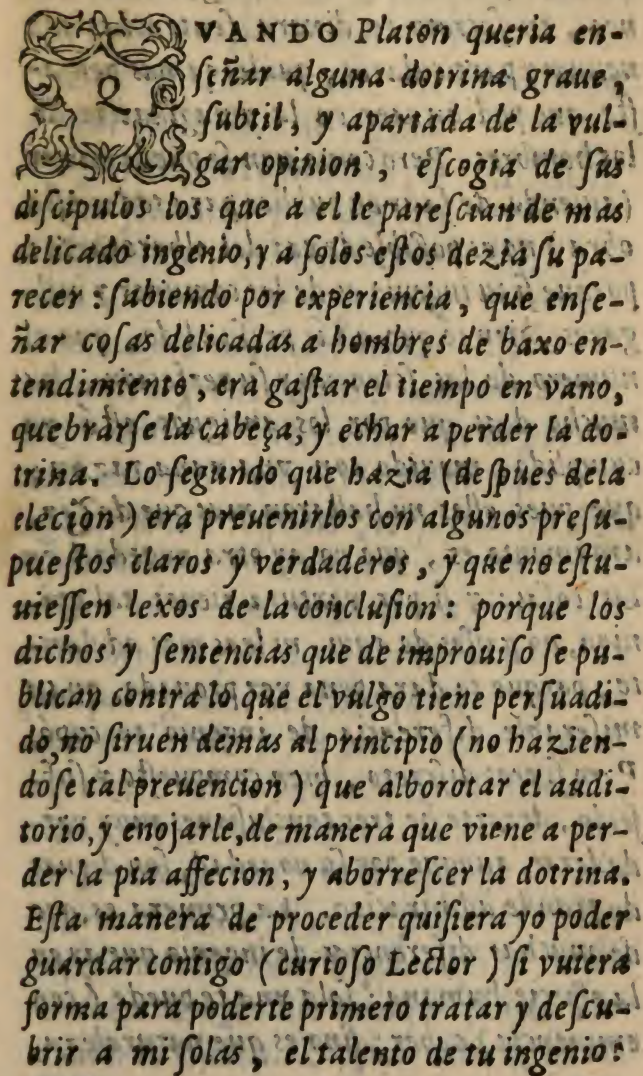 QVANDO Platon queria en-
ſeñar alguna dotrina graue,
ſubtil, y apartada de la vul-
gar opinion, eſcogia de ſus
diſcipulos los que a el le pareſcian de mas
delicado ingenio, y a ſolos eſtos dezia ſu pa-
recer: ſabiendo por experiencia, que enſe-
ñar coſas delicadas a hombres de baxo en-
tendimiento, era gaſtar el tiempo en vano,
quebrarſe la cabeça, y echar a perder la do-
trina. Lo ſegundo que hazia (deſpues dela
elecion) era preuenirlos con algunos preſu-
pueſtos claros y verdaderos, y que no eſtu-
uieſſen lexos de la concluſion: porque los
dichos y ſentencias que de improuiſo ſe pu-
blican contra lo que el vulgo tiene perſuadi-
do, no ſiruen demas al principio (no hazien-
doſe tal preuencion) que alborotar el audi-
torio, y enojarle, de manera que viene a per-
der la pia affecion, y aborreſcer la dotrina.
Eſta manera de proceder quiſiera yo poder
guardar contigo (curioſo Lector) ſi vuiera
forma para poderte primero tratar y deſcu-
brir a mi ſolas, el talento de tu ingenio: